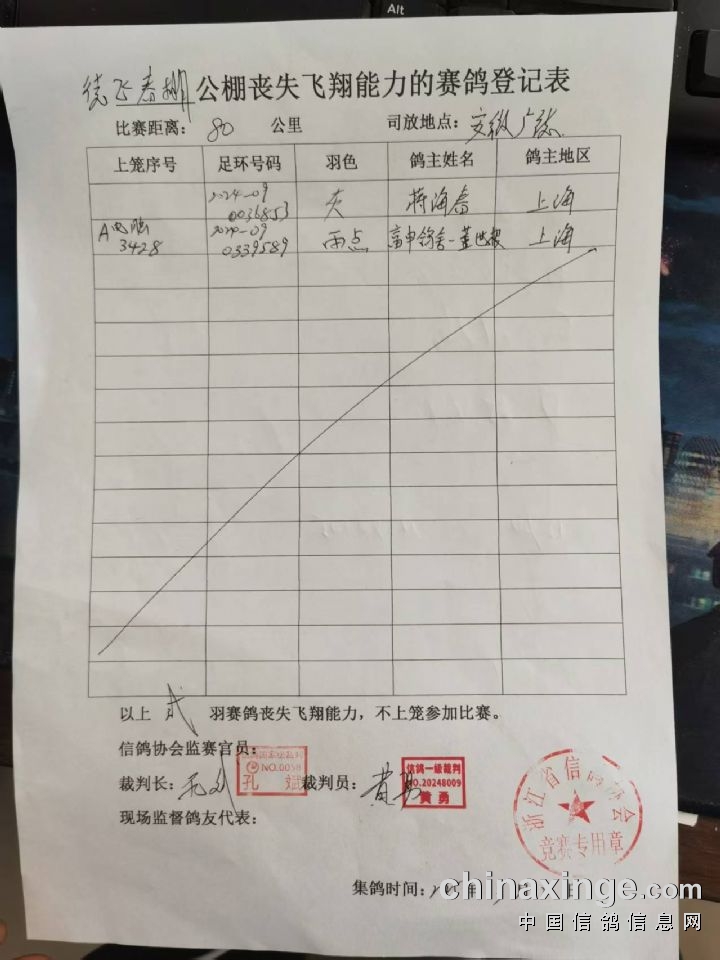 Alt
公棚丧失飞翔能力的赛鸽登记表
比赛距离： 80 公里 司放地点：安徽广德
上笼序号 足环号码 羽色 鸽主姓名 鸽主地区
2024-09
0036853 灰 蒋海 上海
A电脑 3428
0339589 雨点 上海
以上 贰 羽赛鸽丧失飞翔能力，不上笼参加比赛。
信鸽协会监赛官员：
NO.00
裁判长： 孔斌 裁判员： 黄勇
信鸽一级裁判
NO.20248009
黄勇
现场监督鸽友代表：
浙江省信鸽协会
竞赛专用章
集鸽时间：
chinaxinge.com
中国信鸽信息网